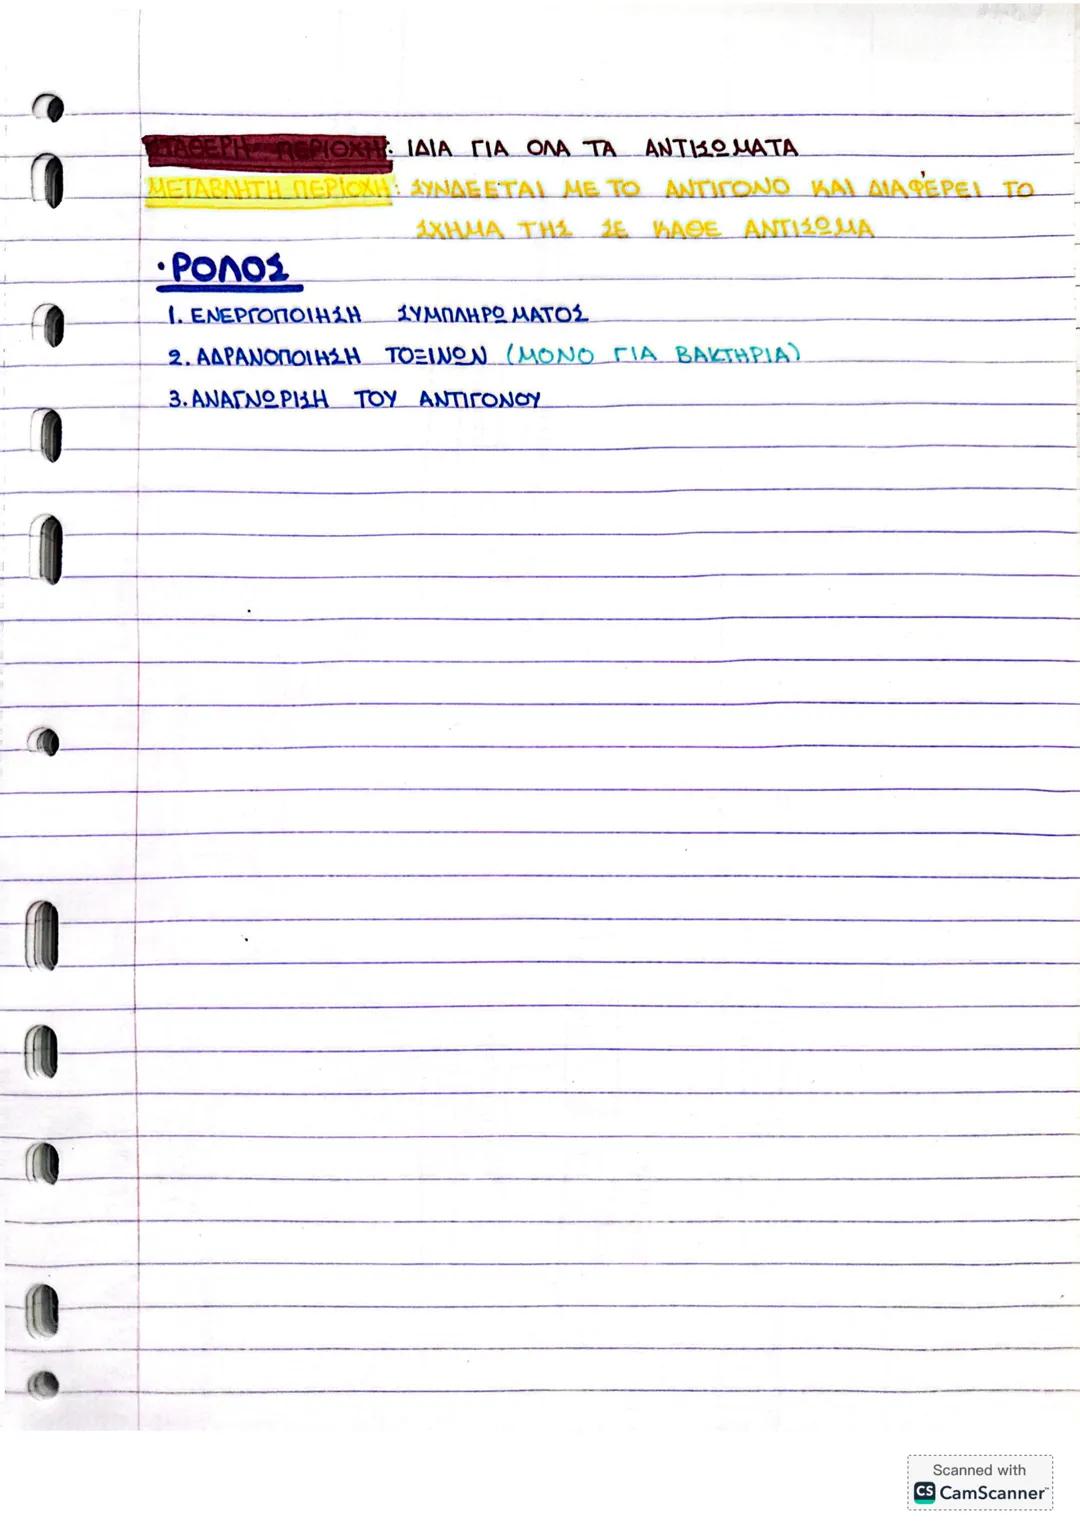 ΣΤΑΘΕΡΗ ΠΕΡΙΟΧΗ: ΙΔΙΑ ΓΙΑ ΟΛΑ ΤΑ ΑΝΤΙΣΩΜΑΤΑ
ΜΕΤΑΒΛΗΤΗ ΠΕΡΙΟΧΗ: ΣΥΝΔΕΕΤΑΙ ΜΕ ΤΟ ΑΝΤΙΓΟΝΟ ΚΑΙ ΔΙΑΦΈΡΕΙ ΤΟ
ΣΧΗΜΑ ΤΗΣ ΣΕ ΚΑΘΕ ΑΝΤΙΣΩΜΑ
·ΡΟΛΟΣ
1. ΕΝΕΡΓΟΠΟΙΗΣΗ ΣΥΜΠΛΗΡΩΜΑΤΟΣ
2. ΑΔΡΑΝΟΠΟΙΗΣΗ ΤΟΞΙΝΩΝ (ΜΟΝΟ ΓΙΑ ΒΑΚΤΗΡΙΑ)
3. ΑΝΑΓΝΩΡΙΣΗ ΤΟΥ ΑΝΤΙΓΟΝΟΥ
Scanned with
CS CamScanner